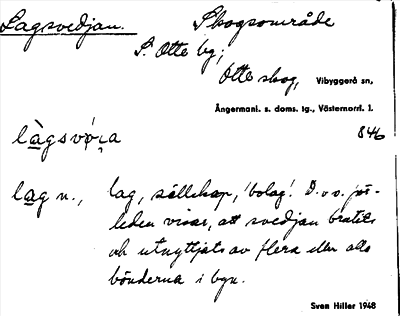 Lagsvedjan. Skogsområde
S. Otte by;
Otte skog, Vibyggerå sn,
Ångermanl. s. doms. tg., Västernorrl. l.
846
làgsvǿ̨ɹa
lag n., lag, sällskap, 'bolag'. D.v.s. för-
leden visar, att svedjan brutits
och utnyttjats av flera eller alla
bönderna i byn.
Sven Hiller 1948